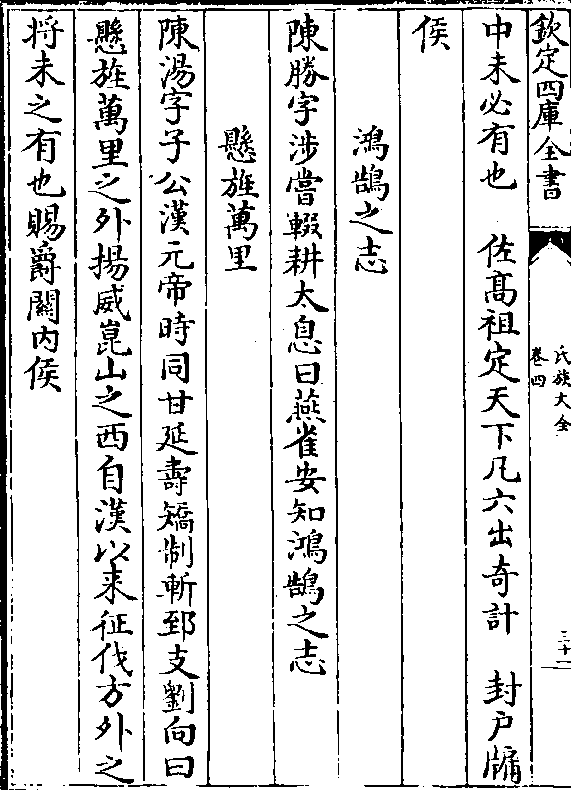 欽定四庫全書
氏族大全
卷四
三十一
中未必有也　佐髙祖定天下凡六出奇計　封户牖
侯
鴻鵠之志
陳勝字涉嘗輟耕太息曰燕雀安知鴻鵠之志
懸旌萬里
陳湯字子公漢元帝時同甘延壽矯制斬郅支劉向曰
懸旌萬里之外揚威崑山之西自漢以来征伐方外之
将未之有也賜爵關内侯